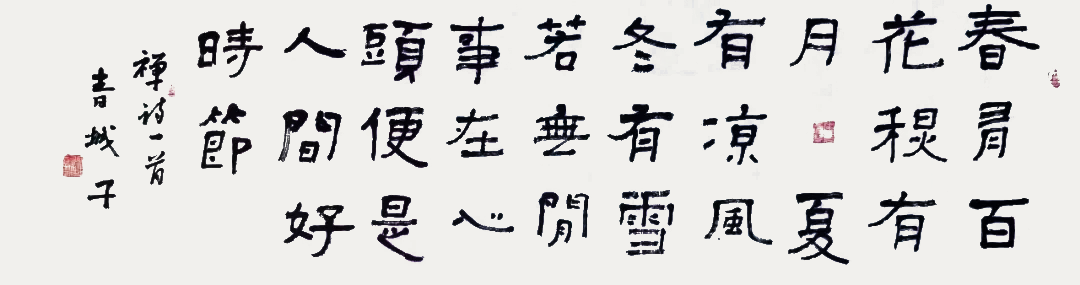 春有百
花秋有
月夏
有凉風
冬有雪
若無閒
事在心
頭便是
人間好
時節
禅诗一首
青城子